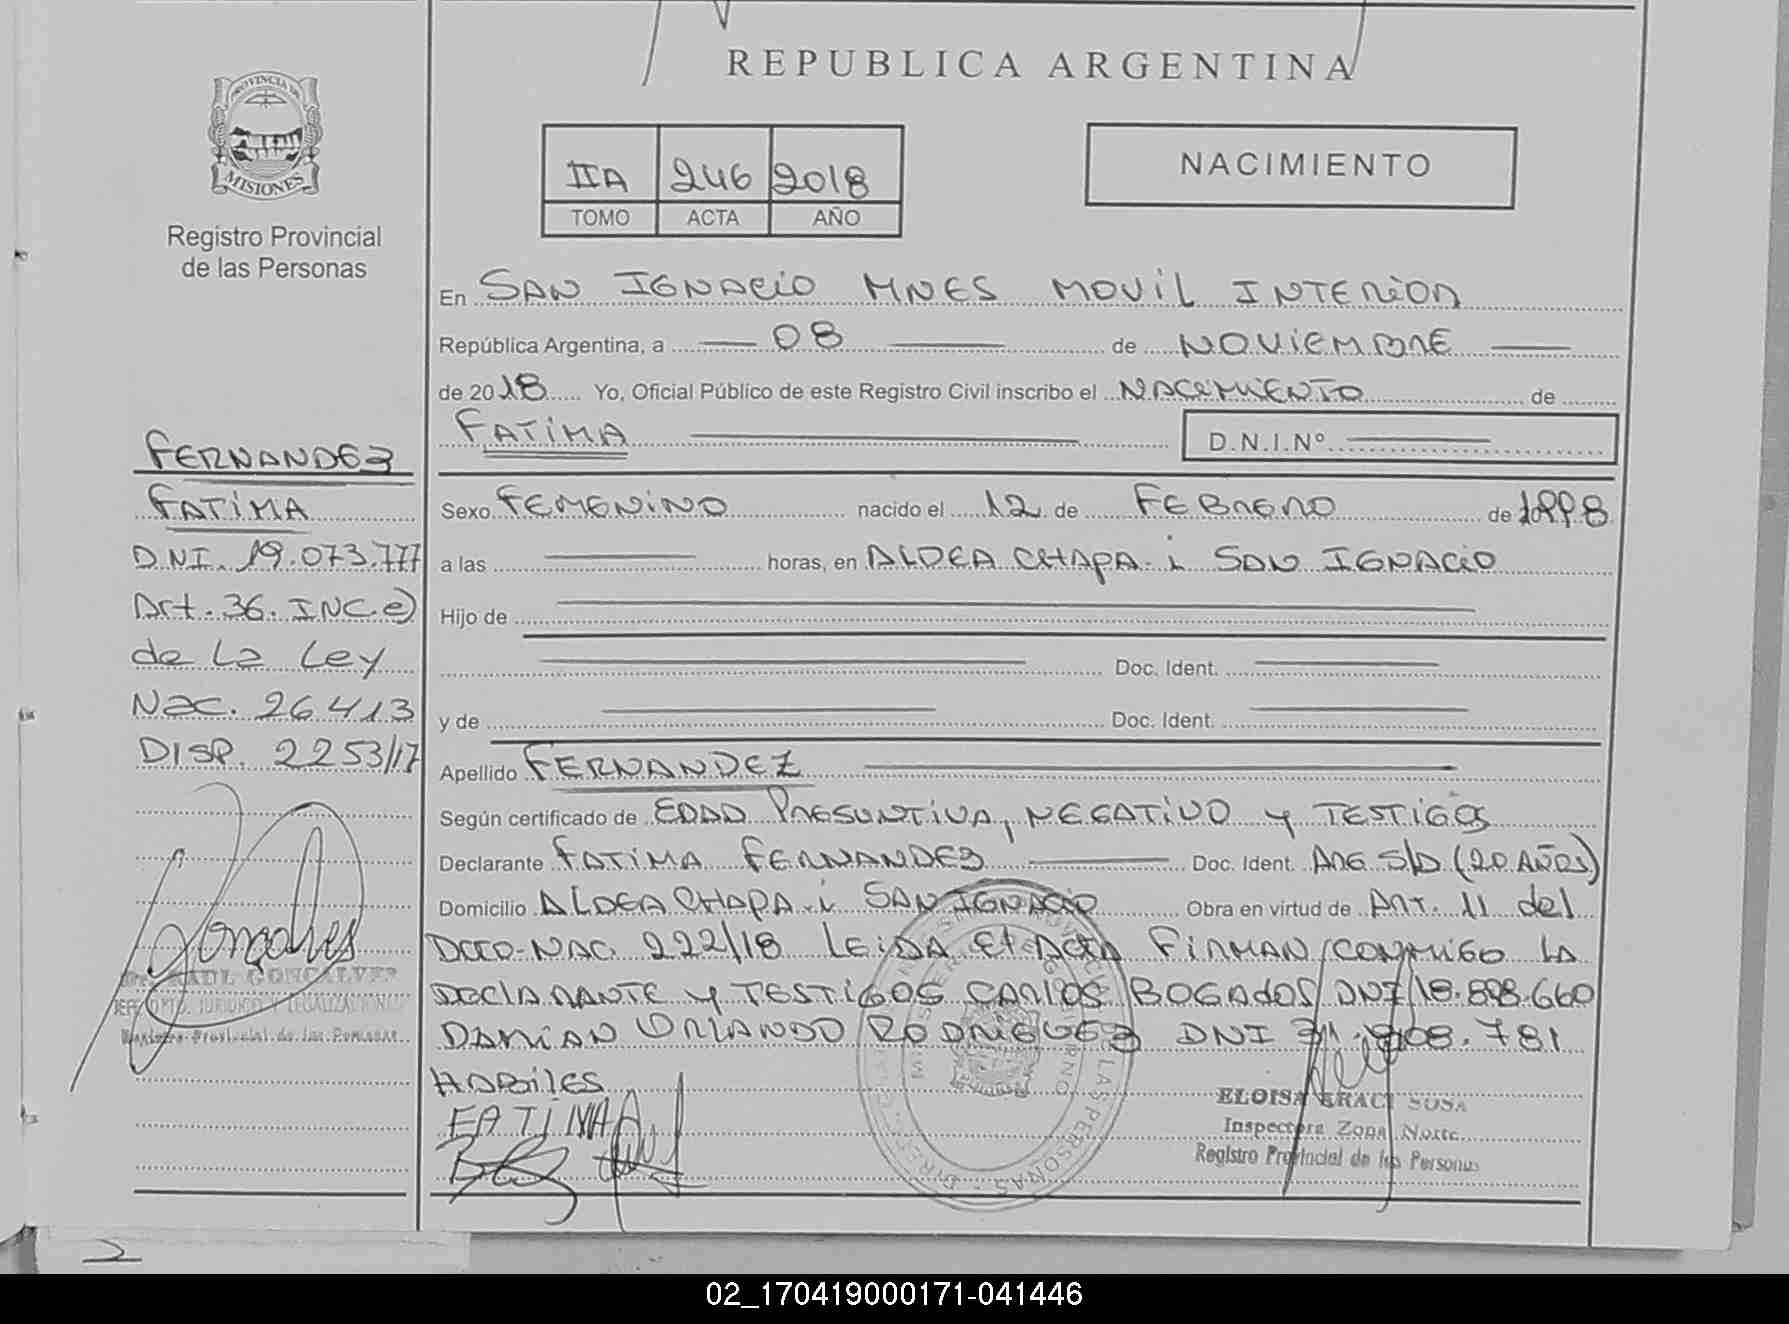 REPUBLICA ARGENTINA
PROVINCIA DE
MISIONES
Registro Provincial
de las Personas
IIA 246 2018
TOMO ACTA AÑO
NACIMIENTO
En SAN IGNACIO MNES MOVIL INTERIOR
República Argentina, a 08 de NOVIEMBRE
de 2018 Yo, Oficial Público de este Registro Civil inscribo el NACIMIENTO de
FATIMA D.N.I.Nº
Sexo FEMENINO nacido el 12 de FEBRERO de 1998
a las horas, en ALDEA CHAPA-i SAN IGNACIO
Hijo de
Doc. Ident.
y de Doc. Ident.
Apellido FERNANDEZ
Según certificado de EDAD PRESUNTIVA, NEGATIVO y TESTIGOS
Declarante FATIMA FERNANDEZ Doc. Ident. ARG S/D (20 AÑOS)
Domicilio ALDEA CHAPA-i SAN IGNACIO Obra en virtud de ART. 11 del
DCTO-NAC. 222/18 LEIDA El ACTA FIRMAN CONMIGO LA
DECLARANTE y TESTIGOS CARLOS BOGADOS DNI 18.898.660
DAMIAN ORLANDO RODRIGUEZ DNI 31.908.781
HABILES
FATIMA
ELOISA ARACI SOSA
Inspectora Zona Norte
Registro Provincial de las Personas
FERNANDEZ
FATIMA
DNI. 19.073.777
Art. 36. INC. e)
de La Ley
Nac. 26413
DISP. 2253/17
Dr. RAUL GONCALVES
JEFE DPTO. JURIDICO Y LEGALIZACIONES
Registro Provincial de las Personas
02_170419000171-041446